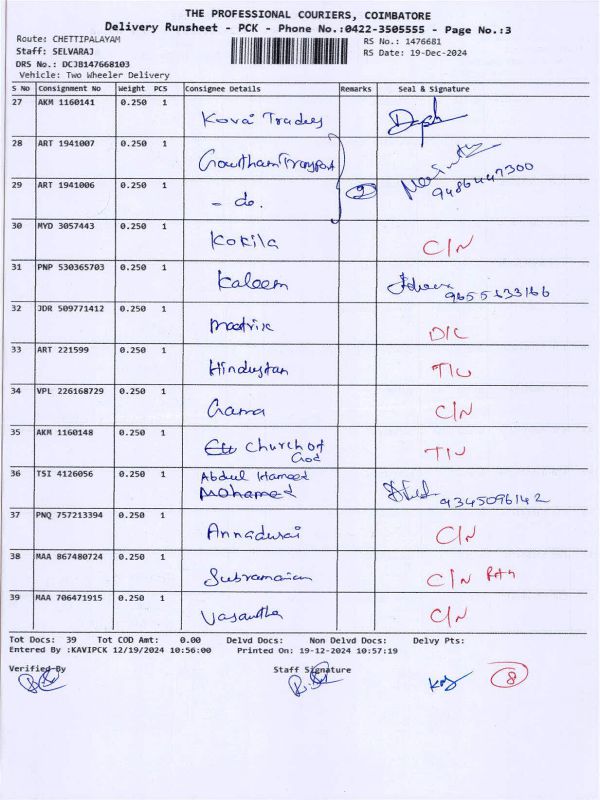 THE PROFESSIONAL COURIERS, COIMBATORE
Delivery Runsheet - PCK - Phone No.:0422-3505555 - Page No.:3
Route: CHETTIPALAYAM RS No.: 1476681
Staff: SELVARAJ RS Date: 19-Dec-2024
DRS No.: DCJB147668103
Vehicle: Two Wheeler Delivery
S No Consignment No Weight PCS Consignee Details Remarks Seal & Signature
27 AKM 1160141 0.250 1 Kovai Traders
28 ART 1941007 0.250 1 Gowtham Transport
29 ART 1941006 0.250 1 - do. 2 9486447300
30 MYD 3057443 0.250 1 Kokila C/N
31 PNP 530365703 0.250 1 Kaleem 9655533166
32 JDR 509771412 0.250 1 Matrix D/C
33 ART 221599 0.250 1 Hindustan
34 VPL 226168729 0.250 1 Gama C/N
35 AKM 1160148 0.250 1 Church of God
36 TSI 4126056 0.250 1 Abdul Hameed
Mohamed 9345096142
37 PNQ 757213394 0.250 1 Annadurai C/N
38 MAA 867480724 0.250 1 Subramanian C/N
39 MAA 706471915 0.250 1 Vasantha C/N
Tot Docs: 39 Tot COD Amt: 0.00 Delvd Docs: Non Delvd Docs: Delvy Pts:
Entered By :KAVIPCK 12/19/2024 10:56:00 Printed On: 19-12-2024 10:57:19
Verified By Staff Signature
8